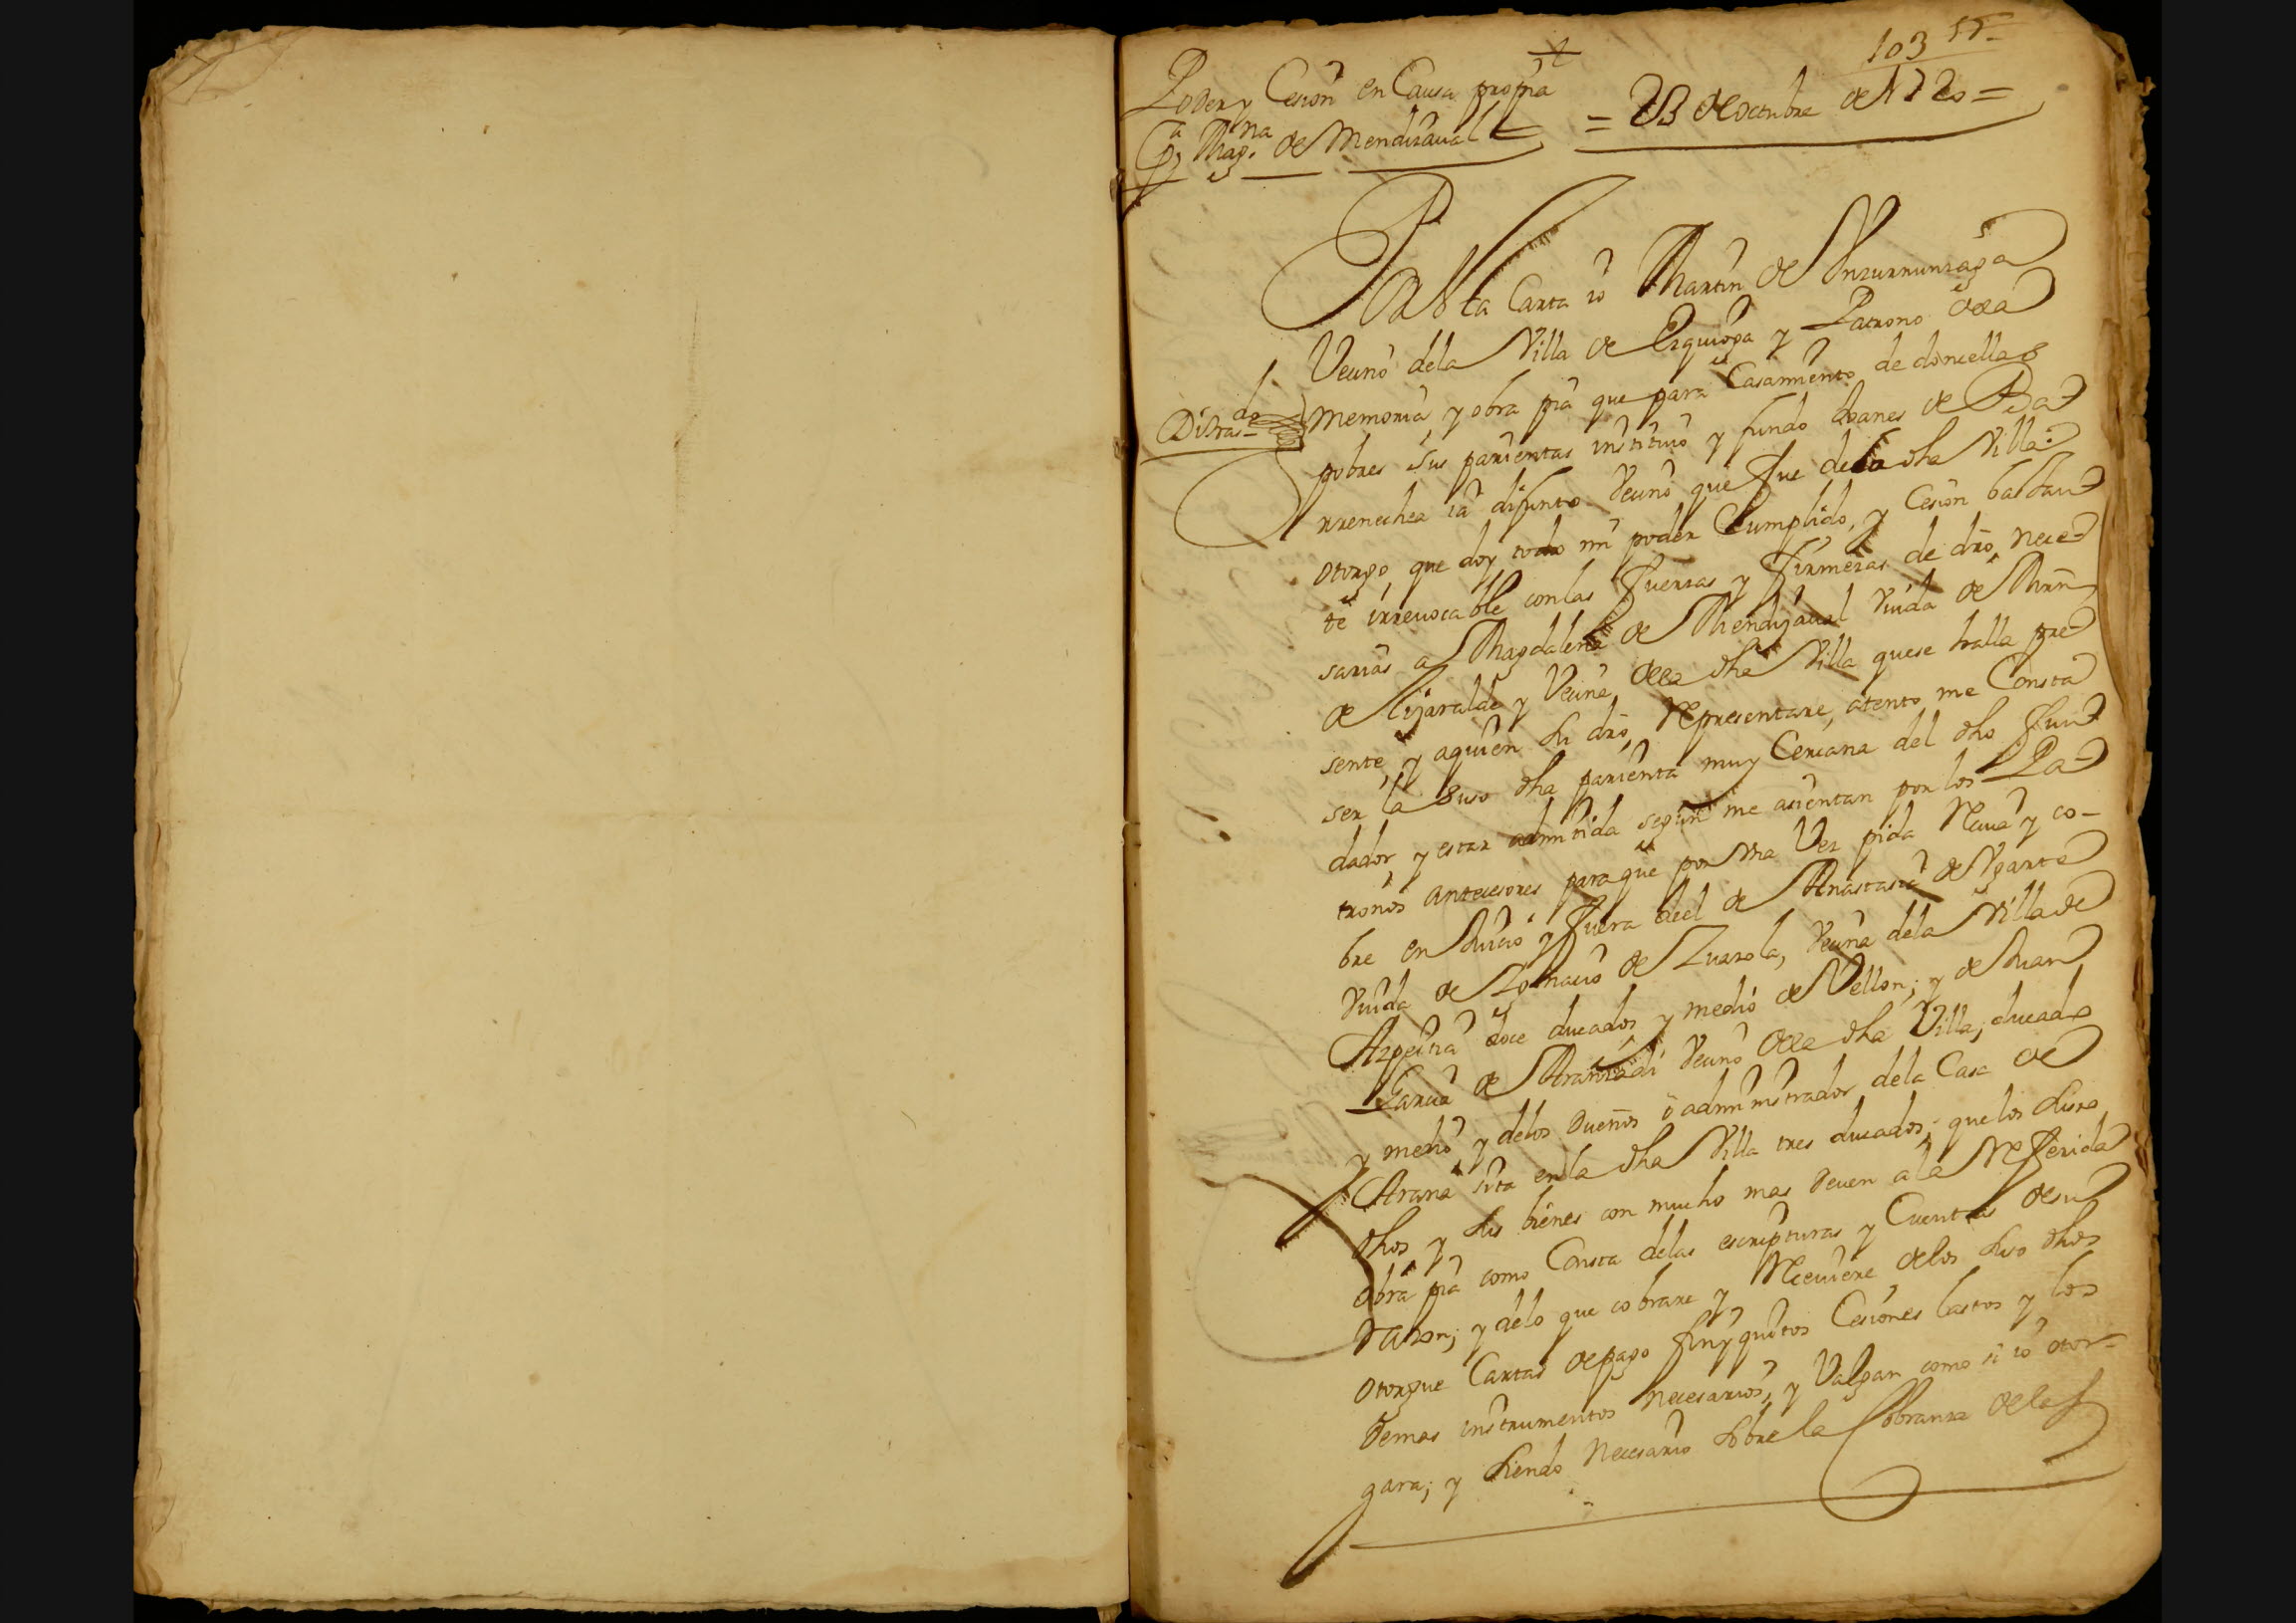 103 57
Poder y Cesion en Causa propia
Pa Magna de Mendizaual =
= 23 de octubre de 1720 =
Por esta Carta io Martin de Inzurrunzaga
Vecino dela Villa de Ezquioga y Patrono dela
memoria y obra pia que para Casamiento de doncellas
pobres sus parientas instituio y fundo Joanes de Ba-
rrenechea ia difunto Vecino que fue dela dha Villa:
otorgo que doy todo mi poder Cumplido, y Cesion bastan-
te irreuocable con las fuerzas y firmezas de dro nece-
sarias a Magdalena de Mendizaual Viuda de Mrn
de Lijaralde y Vecina dela dha Villa quese halla pre-
sente, y aquien su dro Representare, atento me Consta
ser la suso dha parienta muy Cercana del dho fun-
dador, y estar admitida segun me asientan por los Pa-
tronos antecesores para que por vna Vez pida Reciua y co-
bre en Juicio y fuera deel de Anastasia de Vgarte
Viuda de Ignacio de Zuazola, Vecina dela Villa de
Azpeitia doce ducados y medio de Vellon; y de Juan
Garcia de Aranzadi Vecino dela dha Villa, ducado
y medio y delos Dueños o administrador dela Casa de
Arana sita enla dha Villa tres ducados; que los suso
dhos y sus bienes con mucho mas deuen ala Referida
obra pia como Consta delas escripturas y Cuentas desu
razon; y delo que cobrare y Reciuiere delos suso dhos
otorgue Cartas depago finyquitos Cesiones lastos y los
demas instrumentos necesarios, y Valgan como si io otor-
gara; y siendo necesario sobre la Cobranza delos
Distras-do